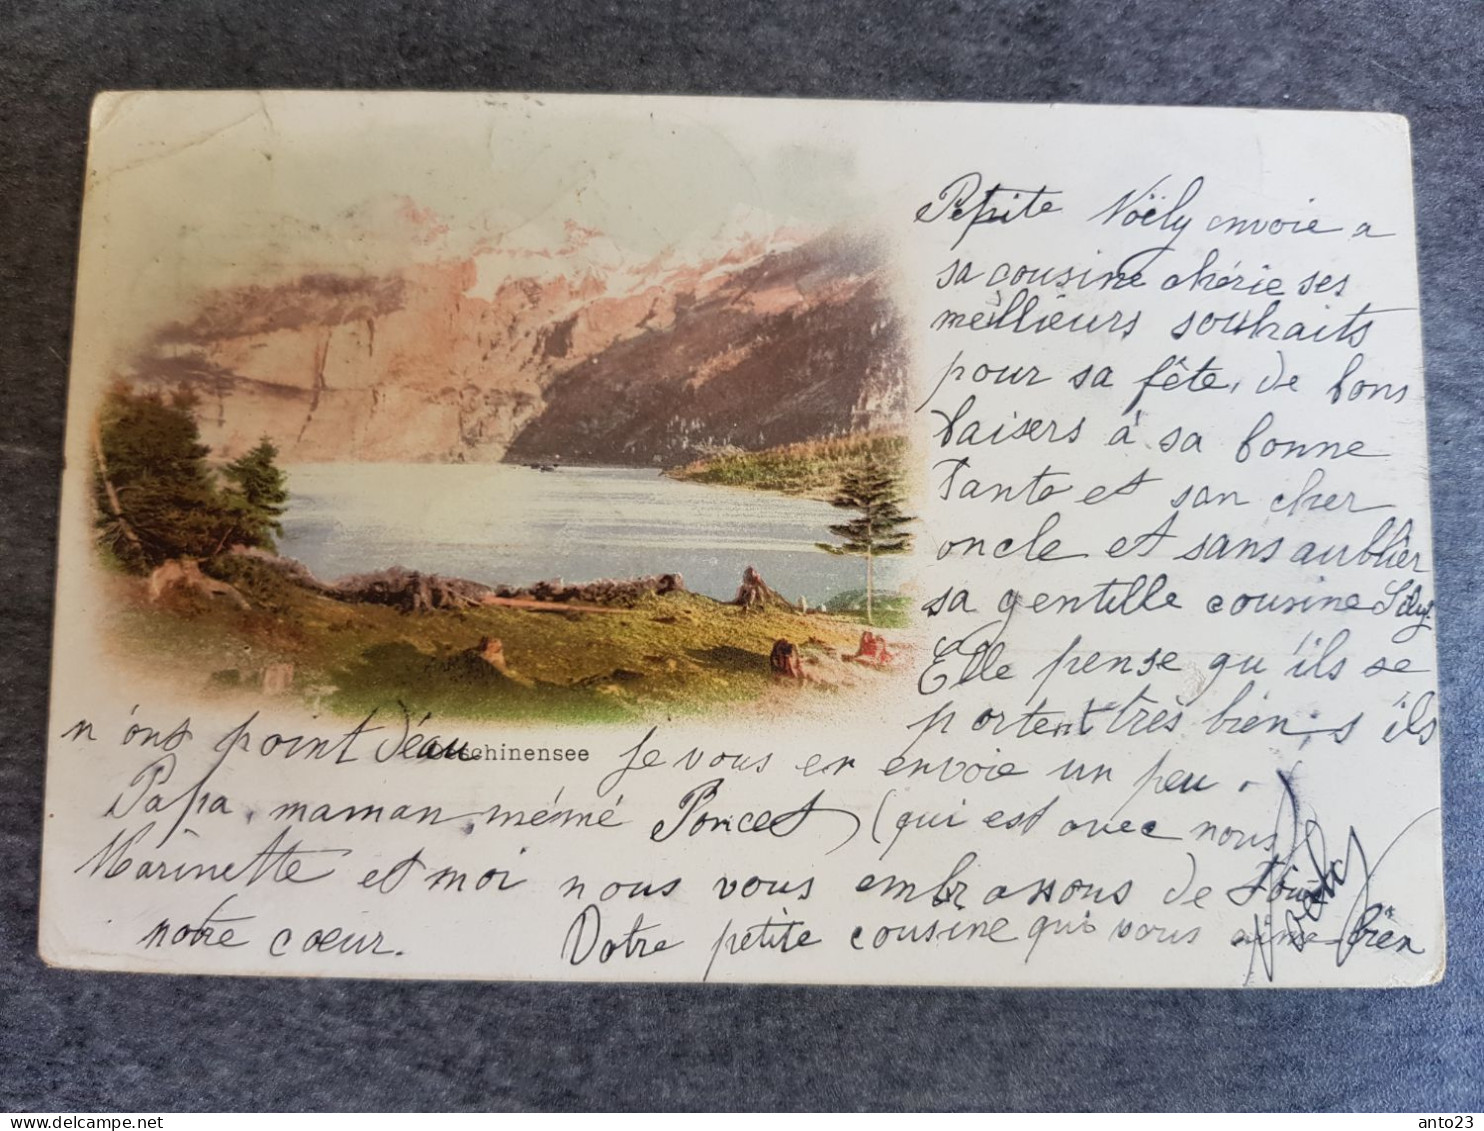 Petite Noëly envoie a
sa cousine chérie ses
meillieurs souhaits
pour sa fête, de bons
baisers à sa bonne
Tante et son cher
oncle et sans aublier
sa gentille cousine
Elle pense qu'ils se
portent très bien, s'ils
n'ont point d'eau Je vous en envoie un peu.
Oeschinensee
Papa, maman, mémé Poncet (qui est avec nous)
Marinette et moi nous vous embrassons de tout
notre cœur. Votre petite cousine qui vous aime bien
Delcampe.net
anto23